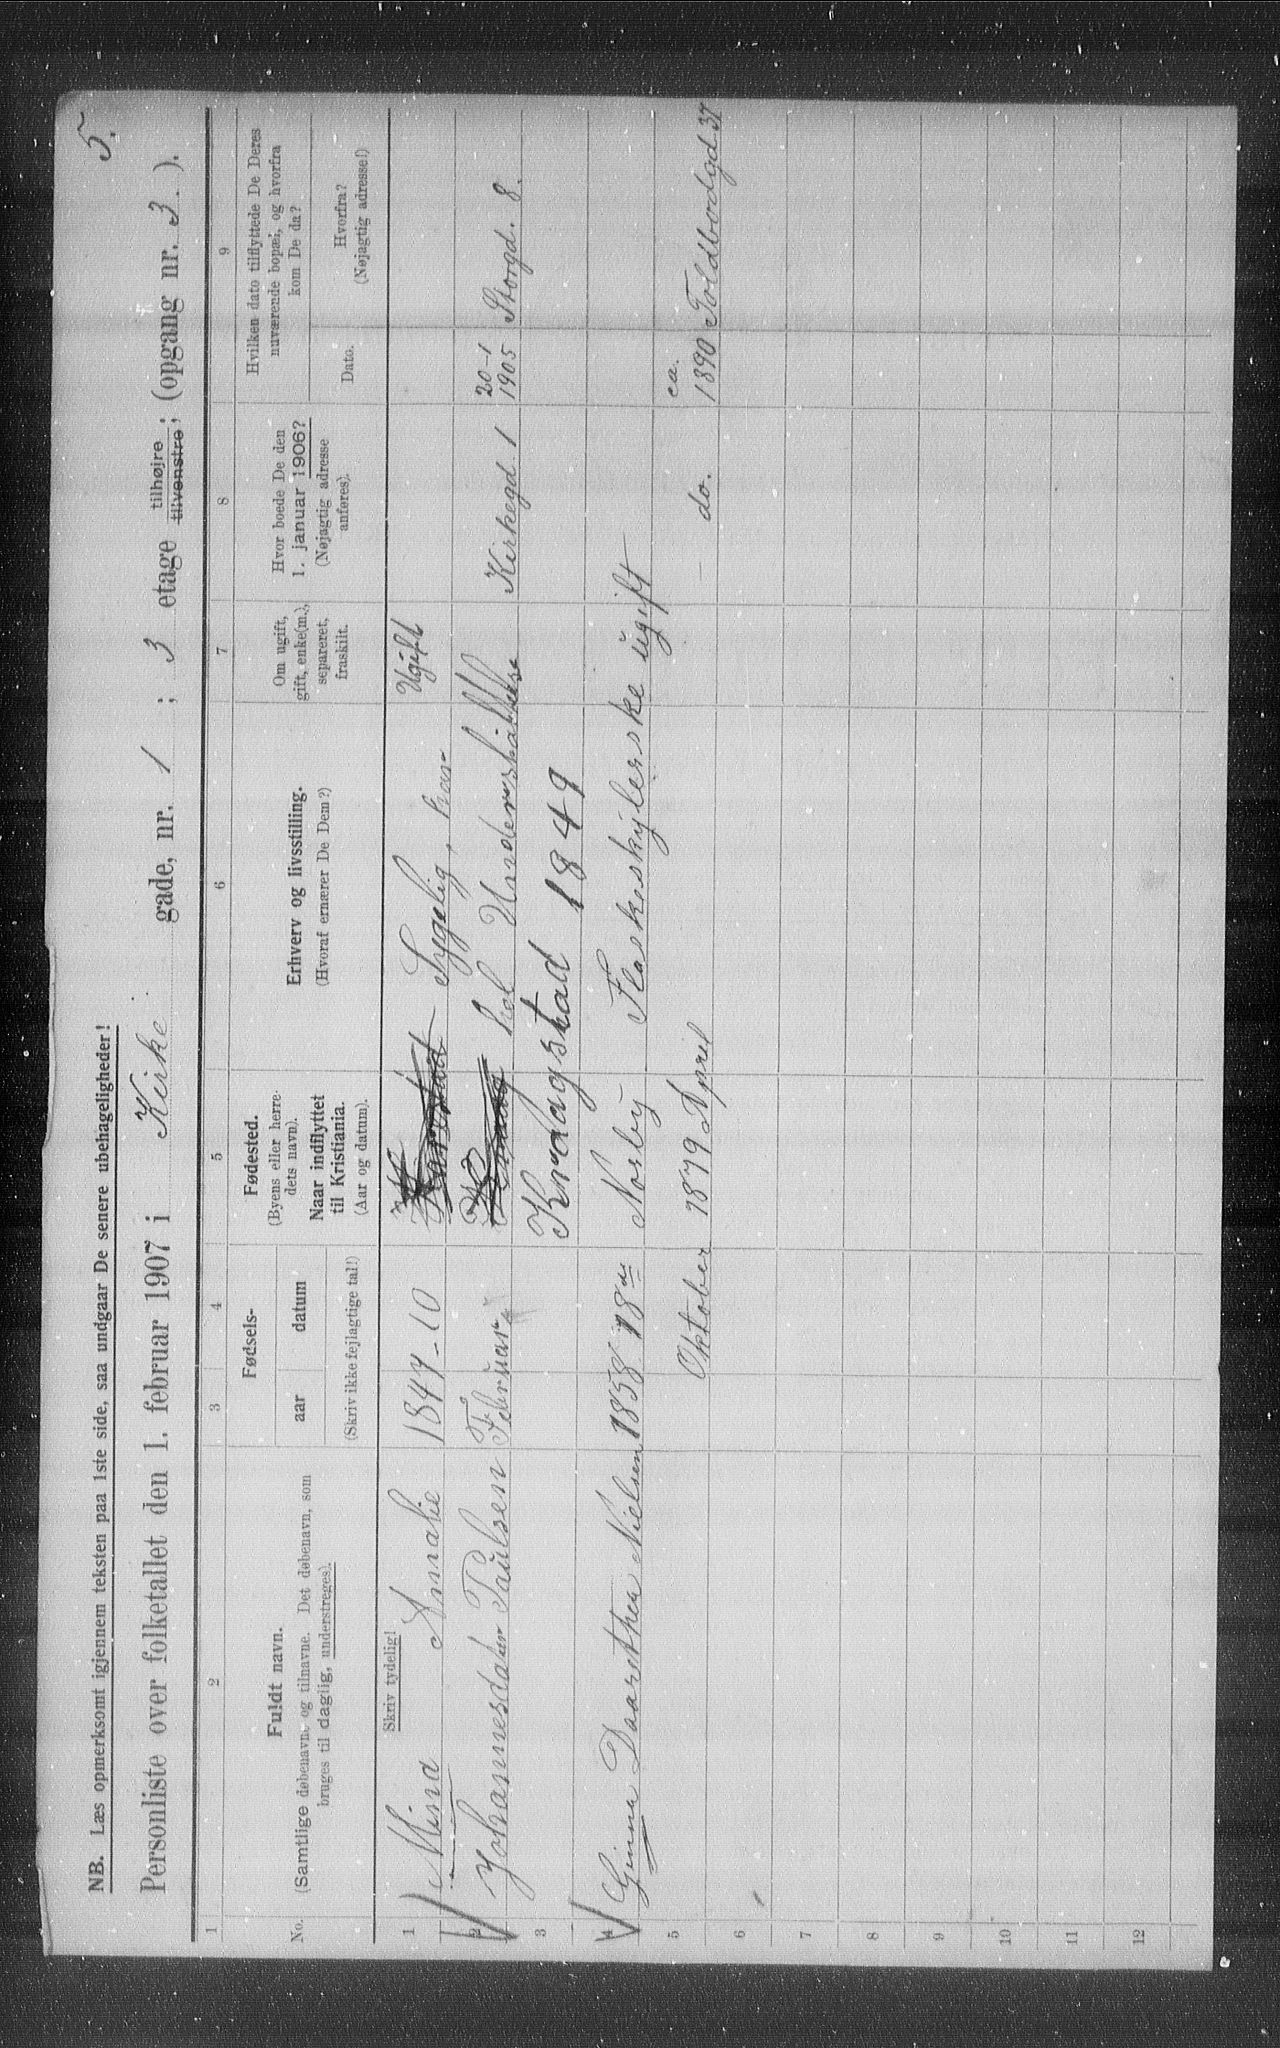 5.
NB. Læs opmerksomt igjennem teksten paa 1ste side, saa undgaar De senere ubehageligheder!
Personliste over folketallet den 1. februar 1907 i Kirke gade, nr. 1 ; 3 etage tilhøjre tilvenstre; (opgang nr. 3. ).
1 2 3 4 5 6 7 8 9
No.
Fuldt navn.
(Samtlige døbenavne og tilnavne. Det døbenavn, som
bruges til daglig, understreges).
Fødsels-
aar datum
(Skriv ikke fejlagtige tal!)
Fødested.
(Byens eller herre-
dets navn).
Naar indflyttet
til Kristiania.
(Aar og datum).
Erhverv og livsstilling.
(Hvoraf ernærer De Dem?)
Om ugift,
gift, enke(m.),
separeret,
fraskilt.
Hvor boede De den
1. januar 1906?
(Nøjagtig adresse
anføres).
Hvilken dato tilflyttede De Deres
nuværende bopæl, og hvorfra
kom De da?
Dato.
Hvorfra?
(Nøjagtig adresse!)
Skriv tydelig!
1 Mina Amalie 1847-10 Sygelig, har Ugift
2 Johannesdater Paulsen Februar hol Understøttelse Kirkegd. 1 20-1 1905 Storgd. 8.
3 Kragstad 1849
4 Ginna Daarethea Nielsen 1858 18de Norby Flaskeskylerske ugift
5 Oktober 1879 Aprel do. ca. 1890 Toldbodgd 37
6
7
8
9
10
11
12